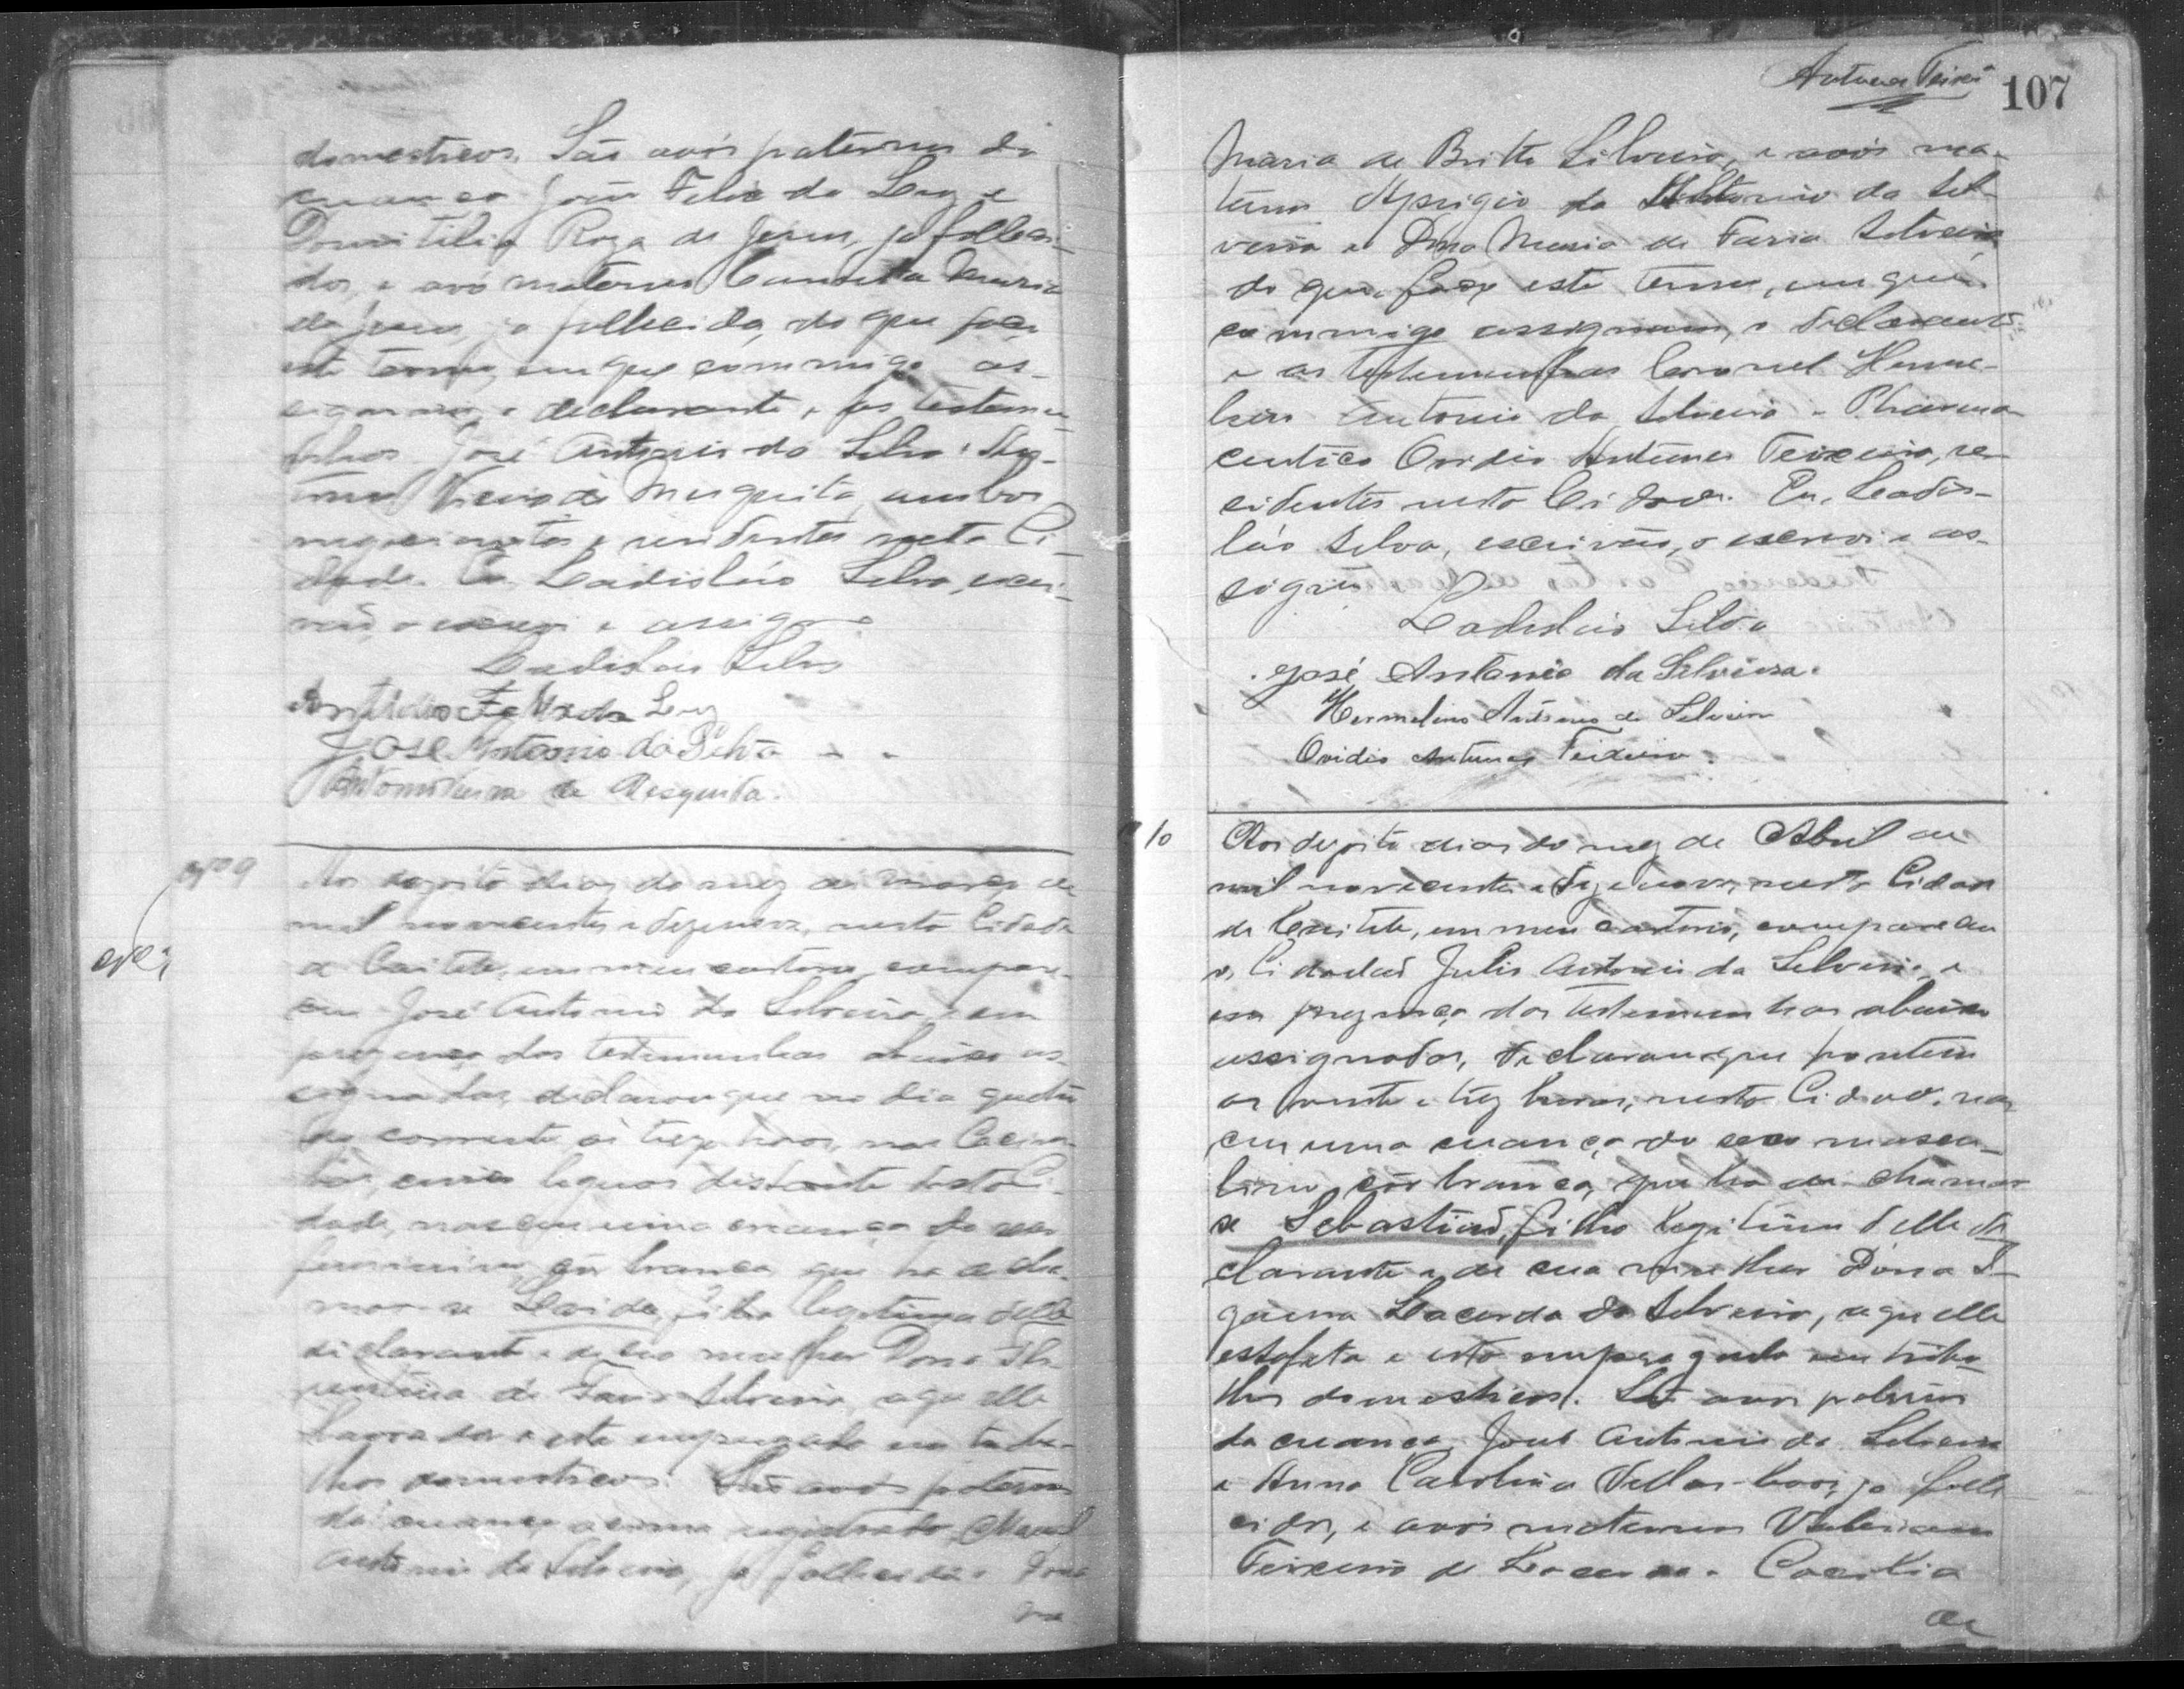 domesticos. São avós paternos da
creança João Felix da Luz e
Domitilia Roza de Jesus, ja falleci-
dos, e avó materna Maria
de Jesus, ja fallecida, do que faço
este termo, em que commigo as-
signam o declarante e as testemu-
nhas José Antonio da Silva e An-
tonio Vieira de Mesquita, ambos
negociantes e residentes nesta Ci-
dade. Eu Ladisláo Silva, escri-
vão, o escrevi e assigno
Ladisláo Silva
Felix da Luz
José Antonio da Silva
Antonio Vieira de Mesquita.
Nº 9
Aos dezoito dias do mez de Março de
mil novecentos e dezenove, nesta Cidade
de Caiteté, em meu cartorio, compare-
ceu José Antonio da Silveira, e em
prezença das testemunhas abaixo as-
signadas, declarou que no dia quatro
do corrente, ás treze horas, nas
leguas distante desta Ci-
dade, nasceu uma creança do sexo
feminino, côr branca, que ha de cha-
mar-se filha legitima delle
declarante e de sua mulher Dona Flo-
rentina de Faria Silveira, aquelle
lavrador e esta empregada em traba-
lhos domesticos. São avós paternos
da creança acima registrada, Manoel
Antonio da Silveira, ja fallecido e Dona
Antunes Teixeira
107
Maria de Britto Silveira, e avós ma-
ternos Aprigio da Antonio da Sil-
veira e Dona Maria de Faria Silveira
do que faço este termo, em que
commigo assignam, o declarante
e as testemunhas Coronel Herme-
lino Antonio da Silveira e Pharma-
ceutico Ovidio Antunes Teixeira, re-
sidentes nesta Cidade. Eu, Ladis-
láo Silva, escrivão, o escrevi e as-
signo
Ladisláo Silva
José Antonio da Silveira.
Hermelino Antonio da Silveira
Ovidio Antunes Teixeira.
Nº 10
Aos dezoito dias do mez de Abril de
mil novecentos e dezenove, nesta Cidade
de Caiteté, em meu cartorio, compareceu
o Cidadão Julio Antonio da Silveira, e
em prezença das testemunhas abaixo
assignadas, declarou que hontem
as vinte e trez horas, nesta Cidade, nas-
ceu uma creança do sexo mascu-
lino, côr branca, que ha de chamar-
se Sebastião, filho legitimo delle de-
clarante e de sua mulher Dona
Lacerda da Silveira, aquelle
estafeta e esta empregada em traba-
lhos domesticos. São avós paternos
da creança, José Antonio da Silveira
e Anna Carolina Villas-boas, ja falle-
cidos, e avós maternos Valeriano
Teixeira de Lacerda e
de